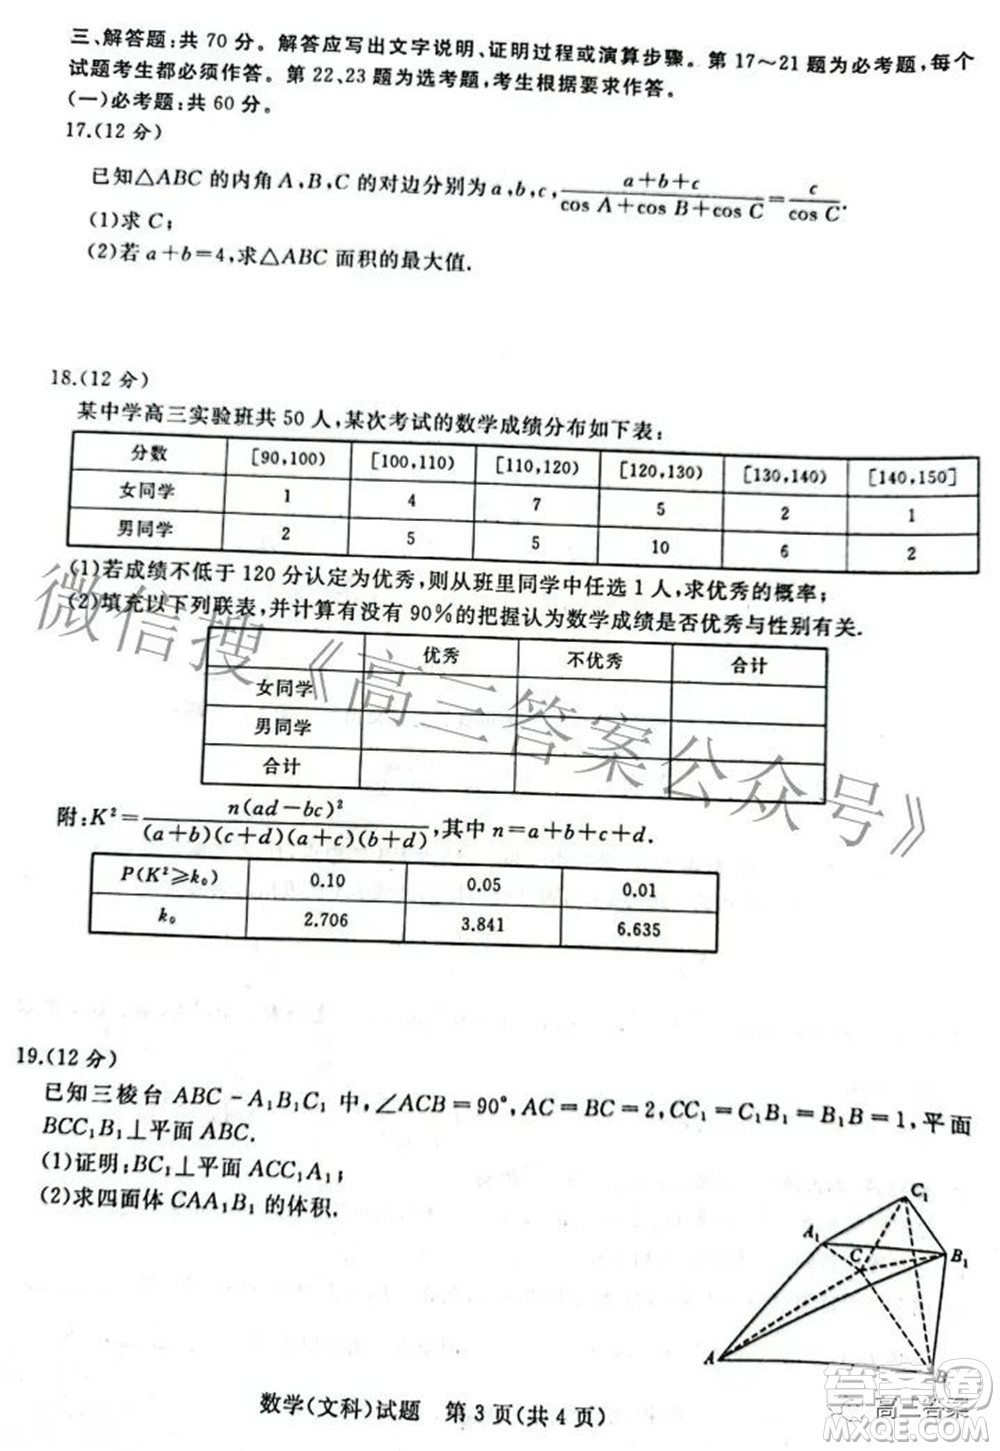 三、解答题:共 70 分。解答应写出文字说明、证明过程或演算步骤。第 17～21 题为必考题,每个
试题考生都必须作答。第 22、23 题为选考题,考生根据要求作答。
(一)必考题:共 60 分。
17.(12 分)
已知△ABC 的内角 A,B,C 的对边分别为 a,b,c, (a+b+c)/(cos A+cos B+cos C)=c/(cos C).
(1)求 C;
(2)若 a+b=4,求△ABC 面积的最大值.
18.(12 分)
某中学高三实验班共 50 人,某次考试的数学成绩分布如下表:
分数 [90,100) [100,110) [110,120) [120,130) [130,140) [140,150]
女同学 1 4 7 5 2 1
男同学 2 5 5 10 6 2
(1)若成绩不低于 120 分认定为优秀,则从班里同学中任选 1 人,求优秀的概率;
(2)填充以下列联表,并计算有没有 90%的把握认为数学成绩是否优秀与性别有关.
优秀 不优秀 合计
女同学
男同学
合计
附:K²=n(ad-bc)²/((a+b)(c+d)(a+c)(b+d)),其中 n=a+b+c+d.
P(K²≥k₀) 0.10 0.05 0.01
k₀ 2.706 3.841 6.635
19.(12 分)
已知三棱台 ABC-A₁B₁C₁ 中,∠ACB=90°,AC=BC=2,CC₁=C₁B₁=B₁B=1,平面
BCC₁B₁⊥平面 ABC.
(1)证明:BC₁⊥平面 ACC₁A₁;
(2)求四面体 CAA₁B₁ 的体积.
C₁
A₁
C
B₁
A
B
数学(文科)试题 第 3 页(共 4 页)
微信搜《高三答案公众号》
答案圈
高三答案
MXQE.COM